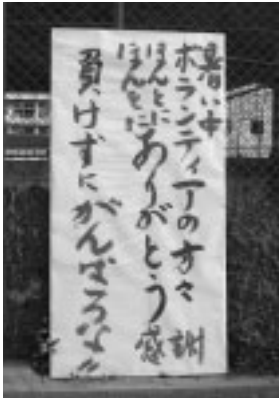 暑い中
ボランティアの方々
ほんとに
ほんとに
ありがとう
感謝
負けずにがんばろな!!